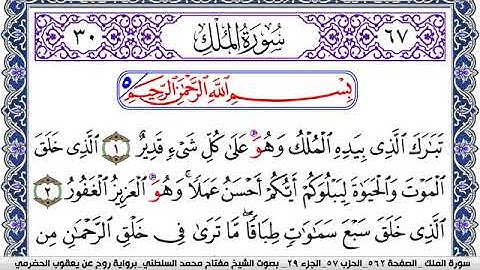 ٦٧ سُورَةُ المُلْكِ ٣٠
بِسْمِ اللَّهِ الرَّحْمَٰنِ الرَّحِيمِ
تَبَارَكَ الَّذِي بِيَدِهِ الْمُلْكُ وَهُوَ عَلَىٰ كُلِّ شَيْءٍ قَدِيرٌ ١ الَّذِي خَلَقَ
الْمَوْتَ وَالْحَيَوٰةَ لِيَبْلُوَكُمْ أَيُّكُمْ أَحْسَنُ عَمَلًا ۚ وَهُوَ الْعَزِيزُ الْغَفُورُ ٢
الَّذِي خَلَقَ سَبْعَ سَمَٰوَٰتٍ طِبَاقًا ۖ مَا تَرَىٰ فِي خَلْقِ الرَّحْمَٰنِ مِن
سورة الملك _ الصفحة ٥٦٢ _ الحزب ٥٧ _ الجزء ٢٩ _ بصوت الشيخ مفتاح محمد السلطني _ برواية روح عن يعقوب الحضرمي